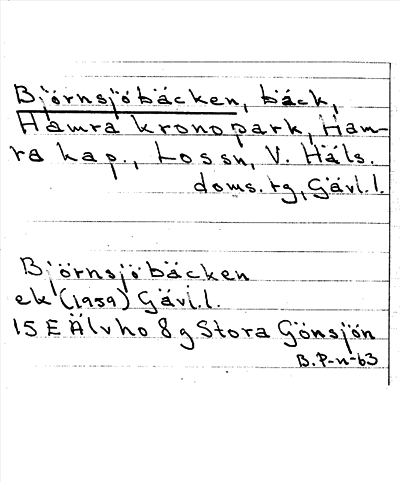 Björnsjöbäcken, bäck,
Hamra kronopark, Ham-
ra kap., Lossn, V. Häls.
doms.rg, Gävl.l.
Björnsjöbäcken
ek (1959) Gävl.l.
15 E Älvho 8 g Stora Gönsjön
B.P-n-63